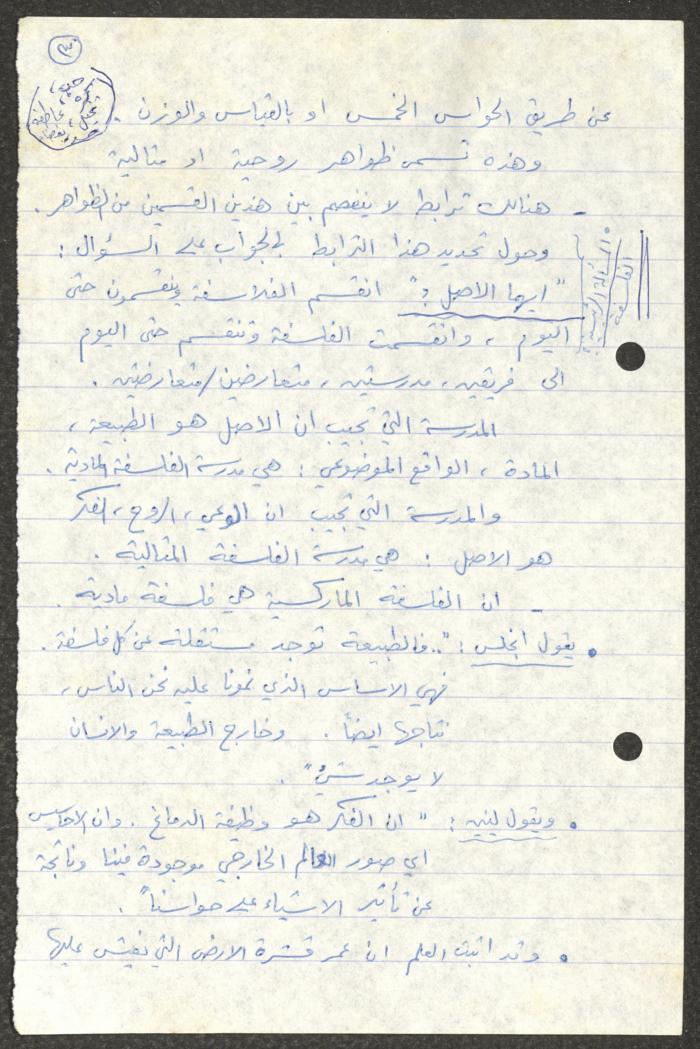 ٣٠
عن طريق الحواس الخمس او بالقياس والوزن.
وهذه تسمى ظواهر روحية او مثالية
- هنالك ترابط لا ينفصم بين هذين القسمين من الظواهر.
وحول تحديد هذا الترابط والجواب على السؤال:
"ايهما الاصل؟" انقسم الفلاسفة وينقسمون حتى
اليوم، وانقسمت الفلسفة وتنقسم حتى اليوم
الى فريقين، مدرستين، متعارضين/متعارضتين.
المدرسة التي تجيب ان الاصل هو الطبيعة،
المادة، الواقع الموضوعي: هي مدرسة الفلسفة المادية.
والمدرسة التي تجيب ان الوعي، الروح، الفكر
هو الاصل: هي مدرسة الفلسفة المثالية.
- ان الفلسفة الماركسية هي فلسفة مادية.
• يقول انجلس: "..فالطبيعة توجد مستقلة عن كل فلسفة.
فهي الاساس الذي نمونا عليه نحن الناس،
نتاجها ايضاً. وخارج الطبيعة والانسان
لا يوجد شيء".
• ويقول لينين: "ان الفكر هو وظيفة الدماغ. وان الاحاسيس
اي صور العالم الخارجي موجودة فينا وناتجة
عن تأثير الاشياء على حواسنا".
• وقد اثبت العلم ان عمر قشرة الارض التي نعيش عليها
المسألة الرئيسية
الفلسفة